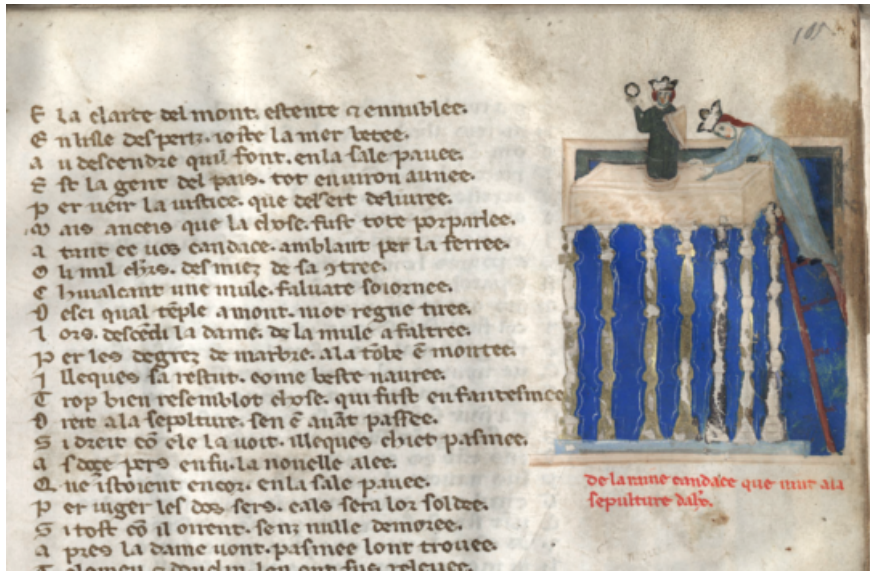 105
E la clarte del mont. estente ⁊ ennublee.
E n lisle des pertz. ioste la mer betee.
A u descendre quil font. en la sale pauee.
E st la gent del pais. tot enuiron aunee.
P er ueir la iustice. que delsert deliuree.
M ais anceis que la chose. fust tote porparlee.
A tant ee uos candace. amblant per la ferree.
O li mil chrs. des miez de sa ꝯtree.
C hiualcant une mule. faluate soiornee.
D esci qual temple amont. not regne tiree.
L ors. descendi la dame. de la mule afaltree.
P er les degrez de marbre. ala tōbe ē montee.
I lleques sa restut. come beste nauree.
T rop bien resemblot chose. qui fust en fantesmee
D reit ala sepolture. sen ē auāt passee.
S i dreit cō ele la uoit. illeques chiet pasmee.
A s doze pers en fu. la nouelle alee.
Q ue istoient encor. en la sale pauee.
P er uiger les dos sers. eals sera lor soldee.
S i tost cō il oirent. senz nulle demoree.
A pres la dame uont. pasmee lont trouee.
T olomeu ⁊ len ont sus releuee.
de la raine candace que uint ala
sepulture dalx̄.